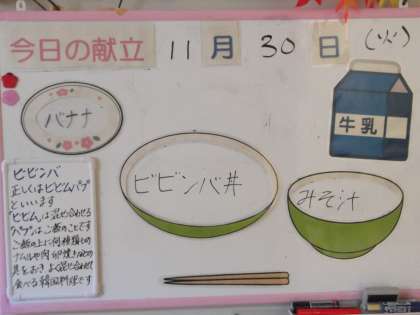 今日の献立 11月30日(火)
バナナ
牛乳
ビビンバ丼
みそ汁
ビビンバ
正しくはビビムパプ
といいます
"ビビム"は混ぜ合わせる
"パプ"はご飯のことです
ご飯の上に何種類もの
ナムルや肉、卵焼きなどの
具をおき、よく混ぜ合わせて
食べる韓国料理です